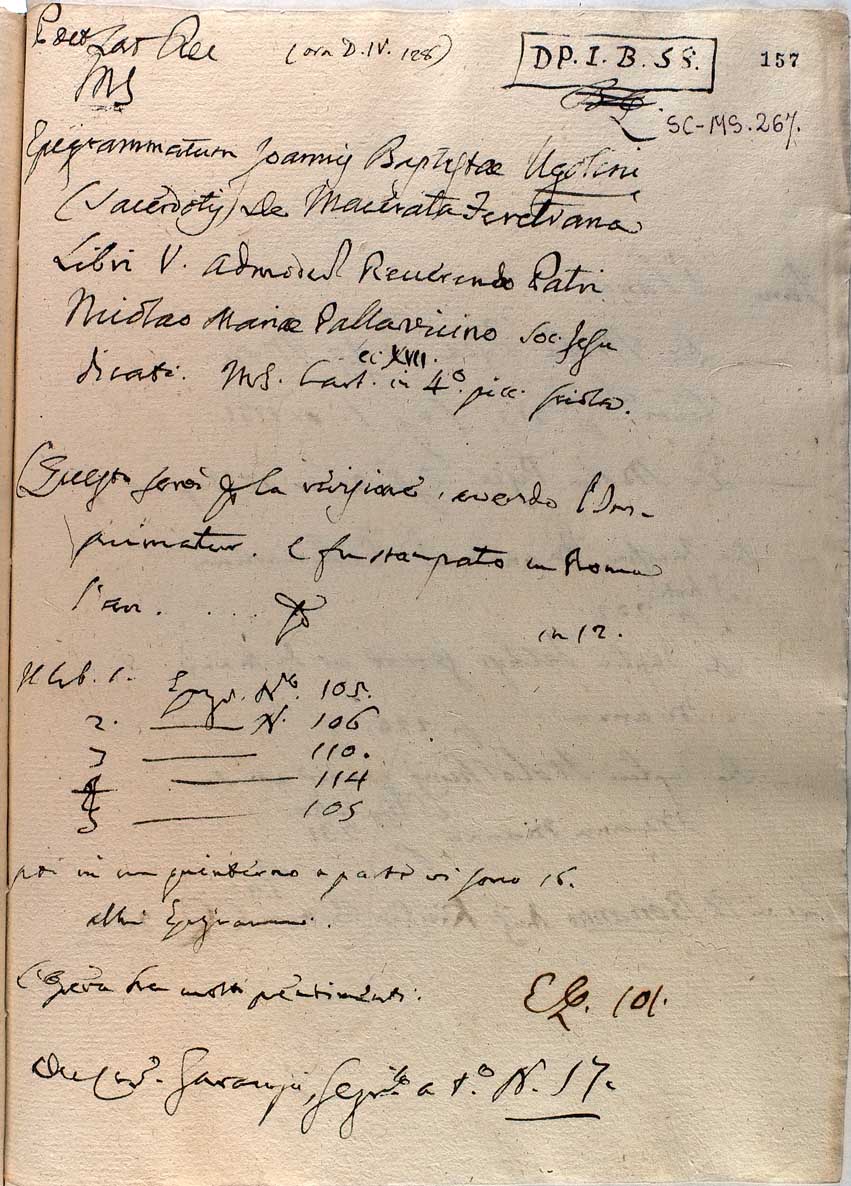 Poet Lat Rec (ora D.IV. 128) DP.I.B.55. 157
MS
SC-MS.267.
Epigrammatum Joannis Baptistae Ugolini
(Sacerdotis) De Macerata Feretrana
Libri V. admodum Reverendo Patri
Nicolao Mariae Pallavicino Soc. Jesu
dicati. MS. Cart. in 4º. picc.
XVII.
(Questo la revisione, avendo l'Im-
primatur. e fu stampato in Roma
l'an. . . . in 12.
Il Lib. 1. Epigr. Nº. 105.
2. N. 106
3 110.
4 114
5 105
poi in un quinterno a parte vi sono 16.
altri Epigrammi.
L'Opera ha molti pentimenti. 101.
a tº N. 17.